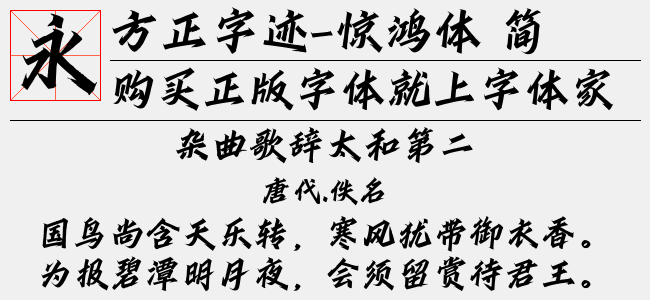 永
方正字迹-惊鸿体 简
购买正版字体就上字体家
杂曲歌辞太和第二
唐代.佚名
国鸟尚含天乐转，寒风犹带御衣香。
为报碧潭明月夜，会须留赏待君王。